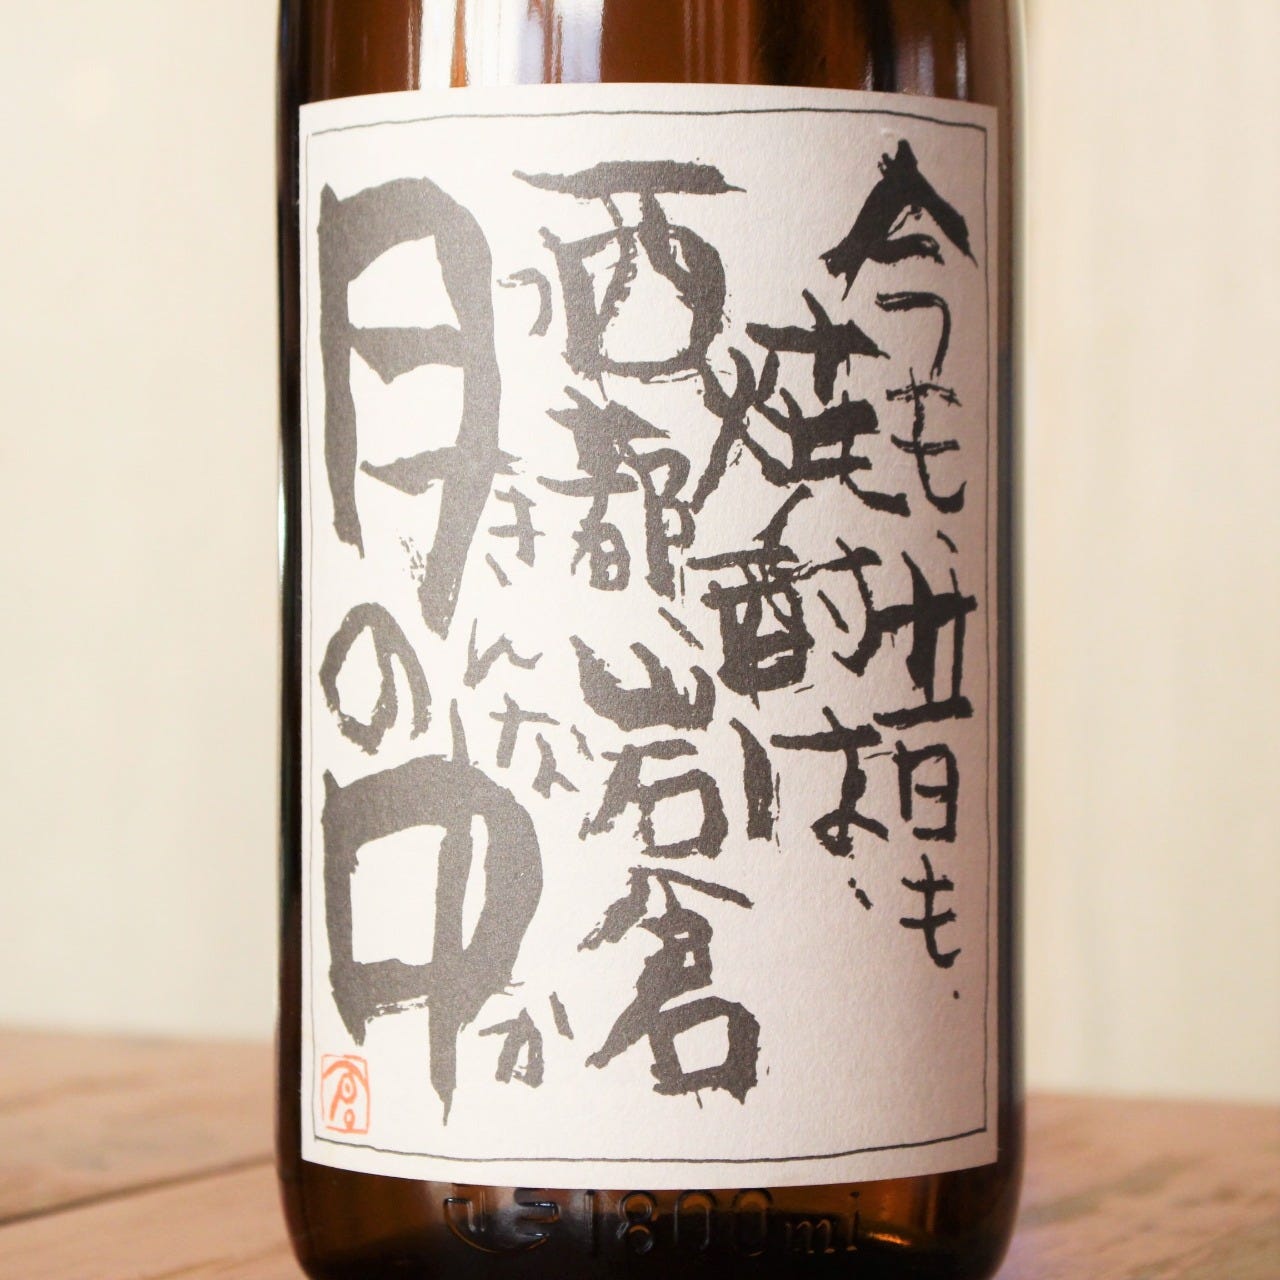 今も、昔も.
焼酎は、
西都、岩倉
つきんなか
月の中
1800ml